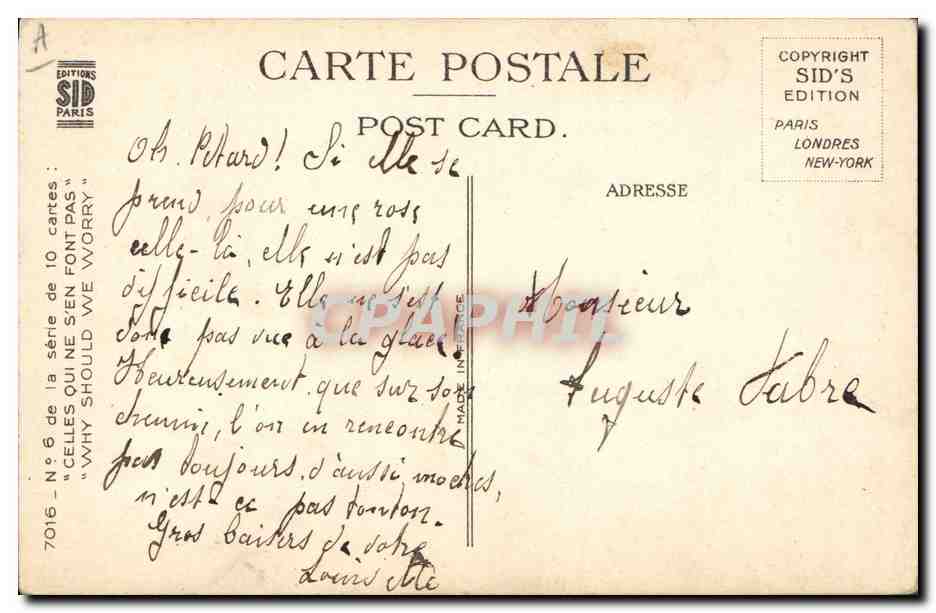 A
EDITIONS
SID
PARIS
CARTE POSTALE
POST CARD.
COPYRIGHT
SID'S
EDITION
PARIS
LONDRES
NEW-YORK
7016 - No 6 de la série de 10 cartes:
"CELLES QUI NE S'EN FONT PAS"
"WHY SHOULD WE WORRY"
Oh. Pétard! Si elle se
prend pour une rose
celle-là, elle n'est pas
difficile. Elle ne s'est
donc pas vue à la glace.
Heureusement que sur son
chemin, l'on en rencontre
pas toujours d'aussi moches,
n'est ce pas tonton.
Gros baisers de votre
Louisette
MADE IN FRANCE
CPAPHIL
ADRESSE
Monsieur
Auguste Fabre